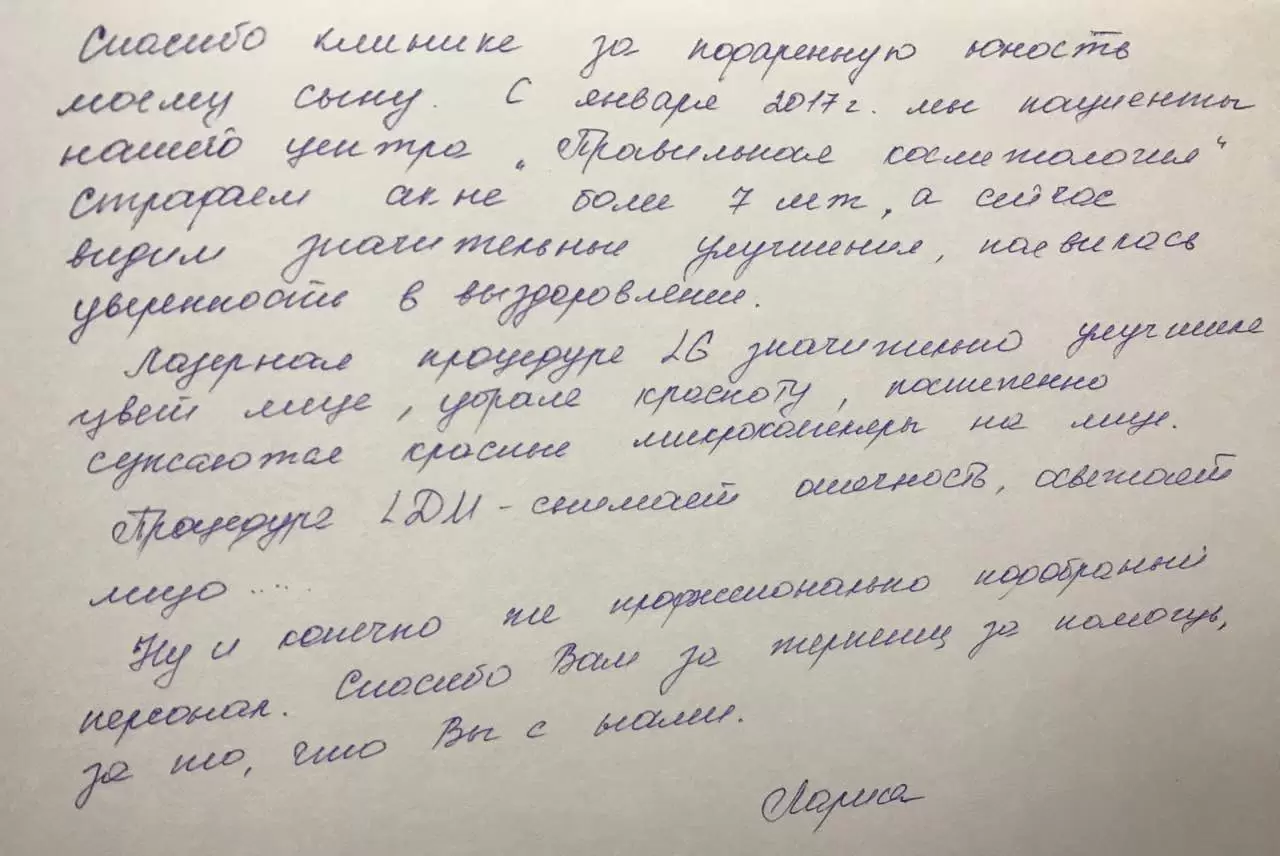 Спасибо клинике за подаренную юность
моему сыну. С января 2017 г. мы пациенты
нашего центра „Правильная косметология“
страдаем акне более 7 лет, а сейчас
видим значительные улучшения, появилась
уверенность в выздоровлении.
Лазерная процедура LG значительно улучшила
цвет лица, убрала красноту, постепенно
сужаются красные микрокапиляры на лице.
Процедура LDM - снимает отечность, освежает
лицо ....
Ну и конечно же профессионально подобраный
персонал. Спасибо Вам за терпение за помощь,
за то, что Вы с нами.
Лариса